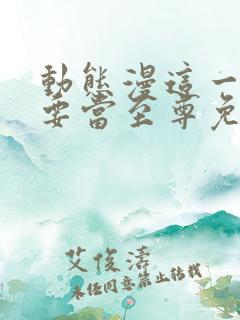 動態漫這一
要當至尊免
艾俊濤
未任同意禁止转载